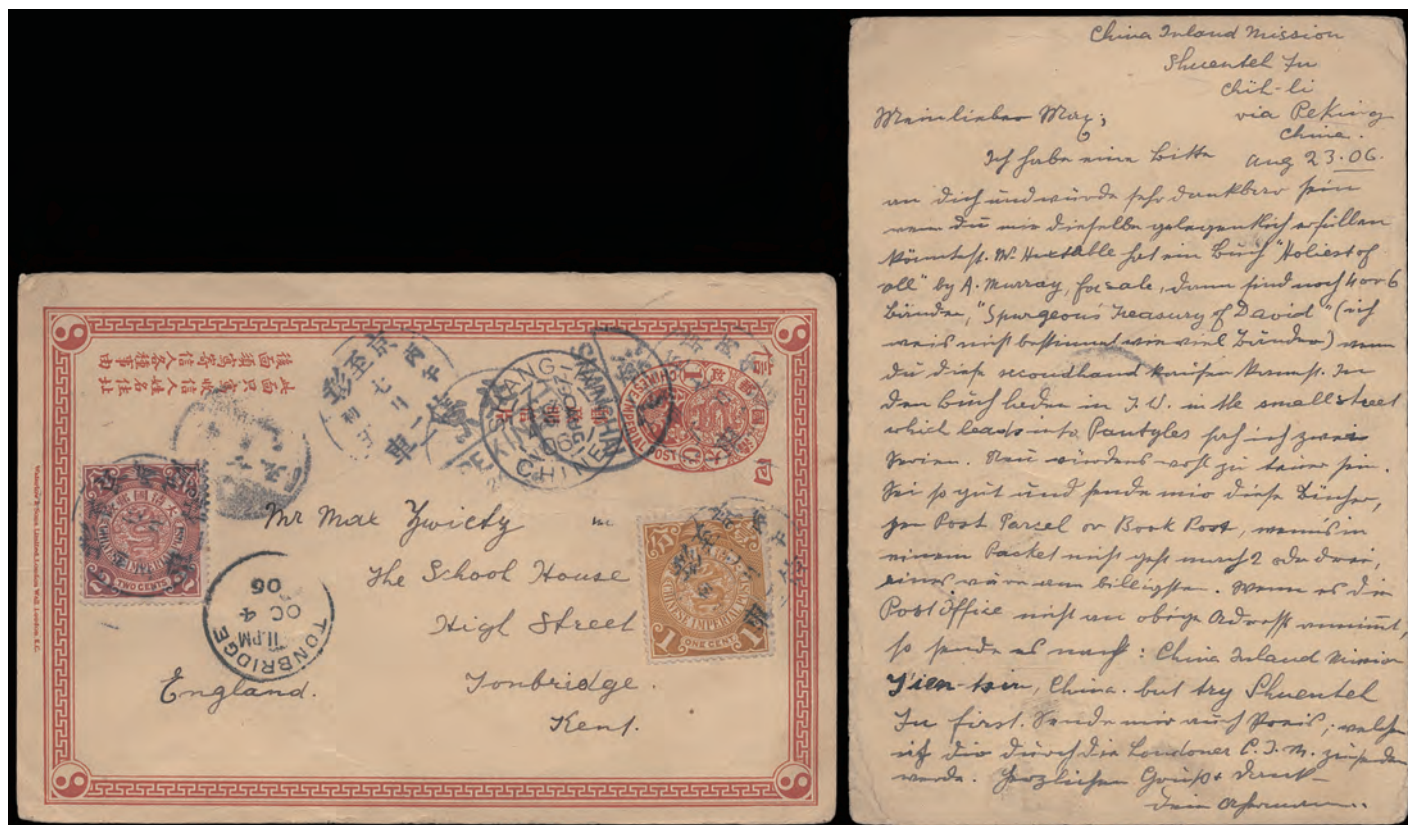 此面只寫收信人姓名住址
後面須寫寄信人各種事由
CHINESE IMPERIAL POST
1
TWO CENTS
CHINESE IMPERIAL POST
1
1
ONE CENT
PEKING
CHINE
TONBRIDGE
11.PM
OC 4
06
Mr Max Zwicky
The School House
High Street
Tonbridge.
Kent.
England.
Waterlow & Sons Limited, London Wall, London, E.C.
China Inland Mission
Shuenteh Fu
Chih-li
via Peking
China.
Aug 23.06.
Mein lieber Max;
Ich habe eine Bitte
an dich und würde sehr dankbar sein
wenn du mir dieselbe gelegentlich erfüllen
könntest. Mr Huxtable hat ein Buch "Holiest of
all" by A. Murray, for sale, dann sind noch 4 or 6
Bänder, "Spurgeon's Treasury of David" (ich
weis nicht bestimmt wie viel Bänder) wenn
du diese secondhand kaufen kannst. In
den Buchläden in T.W. in the small street
which leads into Pantyles sah ich zwei
Serien. Neu würdens wohl zu teuer sein.
Sei so gut und sende mir diese Bücher,
per Post Parsel or Book Post, wenns in
einem Packet nicht geht mach 2 oder drei,
eines wäre am billigsten. Wenn es die
Post Office nicht an obige Adresse annimmt,
so sende es nach: China Inland Mission
Tien-tsin, China. but try Shuenteh
Fu first. Sende mir auch Preis, welchen
ich dir durch die Londoner C.I.M. zusenden
werde. Herzlichen Gruß + Dank
Dein